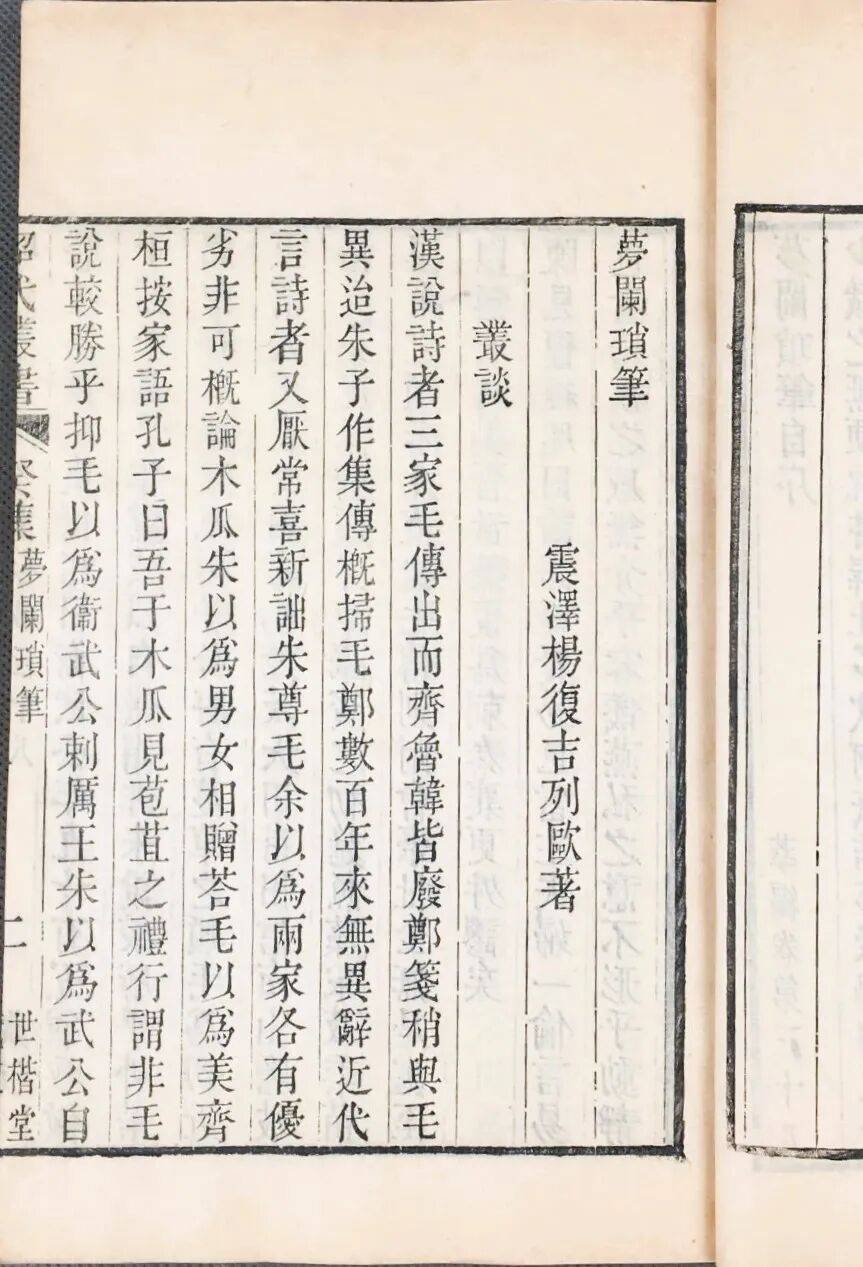 夢闌瑣筆
震澤楊復吉列歐著
叢談
漢說詩者三家毛傳出而齊魯韓皆廢鄭箋稍與毛
異迨朱子作集傳槪掃毛鄭數百年來無異辭近代
言詩者又厭常喜新詘朱尊毛余以爲兩家各有優
劣非可槪論木瓜朱以爲男女相贈荅毛以爲美齊
桓按家語孔子曰吾于木瓜見苞苴之禮行謂非毛
說較勝乎抑毛以爲衞武公刺厲王朱以爲武公自
昭代叢書
癸集夢闌瑣筆
二
世楷堂